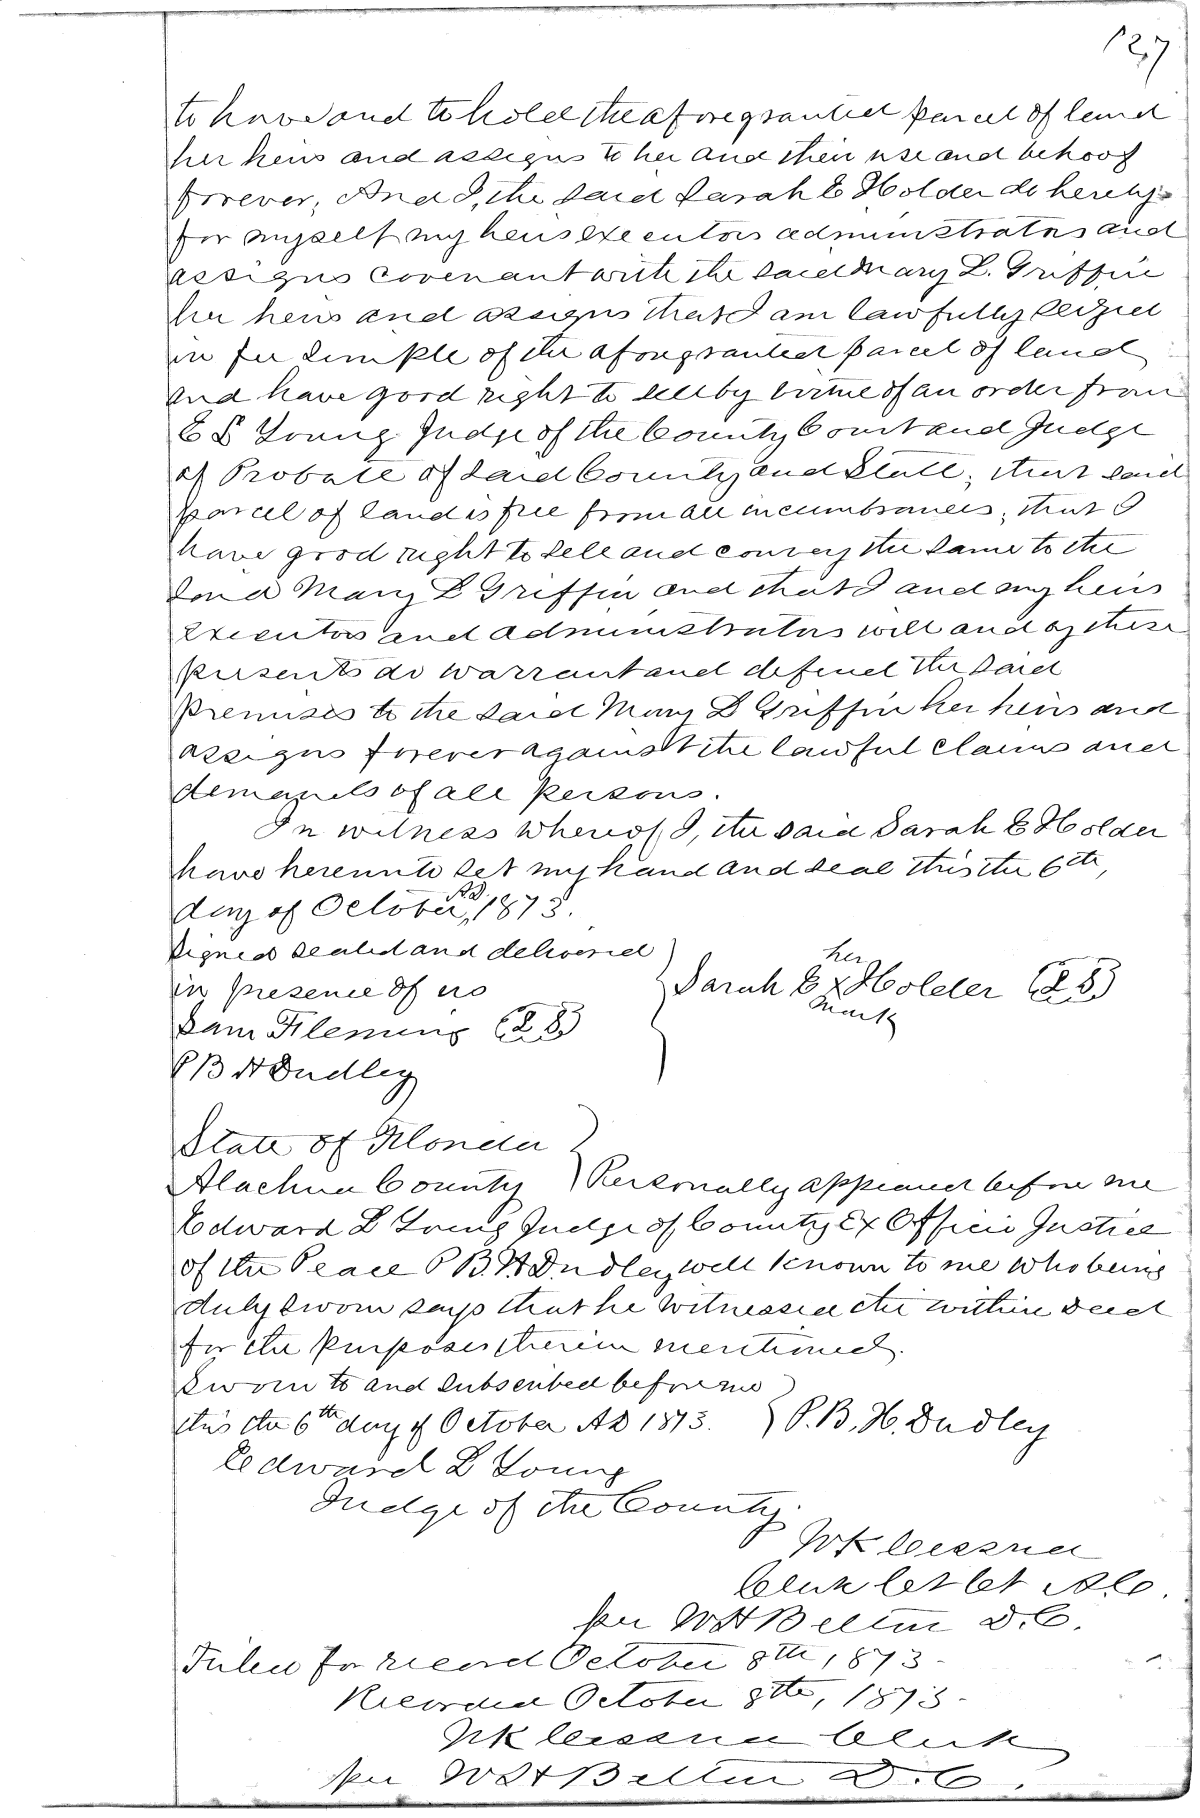 127
to have and to hold the aforegranted parcel of land
her heirs and assigns to her and their use and behoof
forever; And I, the said Sarah E Holder do hereby
for myself my heirs executors administrators and
assigns covenant with the said Mary L. Griffin
her heirs and assigns that I am lawfully seized
in fee simple of the aforegranted parcel of land
and have good right to sell by virtue of an order from
E L Young Judge of the County Court and Judge
of Probate of said County and State; that said
parcel of land is free from all incumbrances; that I
have good right to sell and convey the same to the
said Mary L Griffin and that I and my heirs
executors and administrators will and by these
presents do warrant and defend the said
premises to the said Mary L Griffin her heirs and
assigns forever against the lawful claims and
demands of all persons.
In witness whereof, I, the said Sarah E Holder
have hereunto set my hand and seal this the 6th,
day of October, AD. 1873.
Signed sealed and delivered
in presence of us
Sarah E her X mark Holder (L S)
Sam Fleming (L S)
P B H Dudley
State of Florida
Alachua County } Personally appeared before me
Edward L Young Judge of County Ex Officio Justice
of the Peace P B. H Dudley well known to me who being
duly sworn says that he witnessed the within deed
for the purposes therein mentioned.
Sworn to and subscribed before me
this the 6th day of October AD 1873. } P. B. H. Dudley
Edward L Young
Judge of the County.
JK Cessna
Clerk Ct Ct A.C.
per W H Belton D.C.
Filed for record October 8th, 1873.
Recorded October 8th, 1873.
JK Cessna Clerk
per W H Belton D.C.